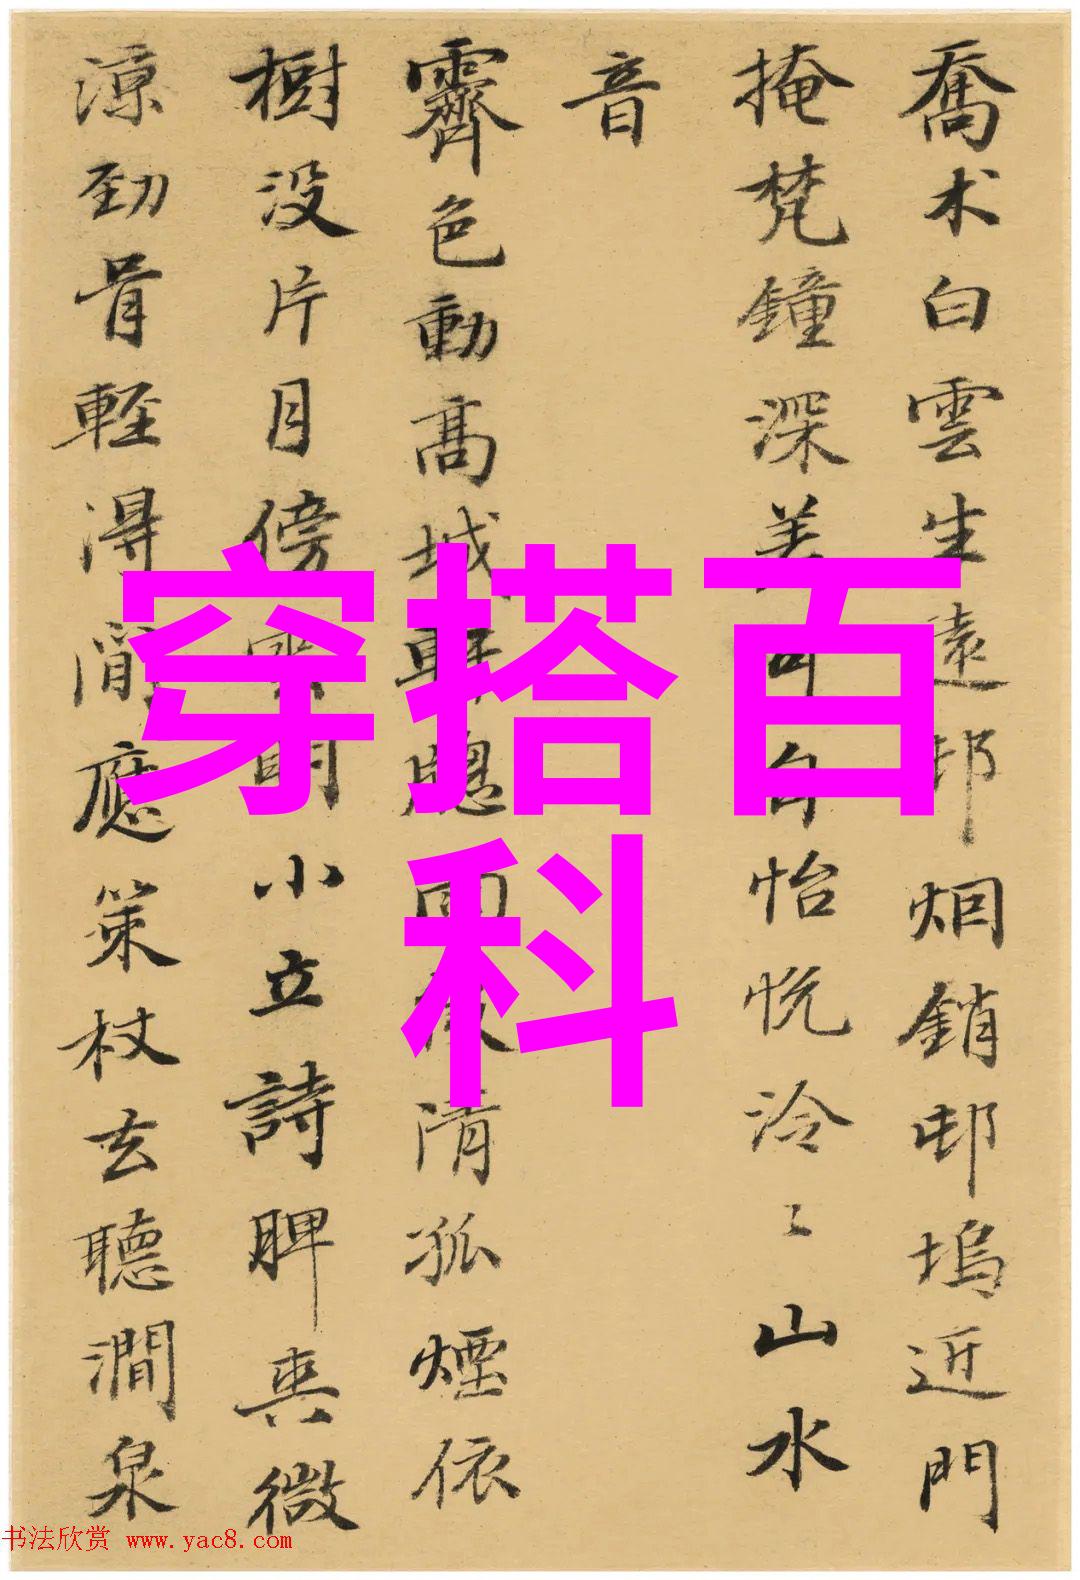 喬木白雲生遠邨烟銷邨塢近門
掩梵鐘深美自怡悦泠〻山水
音
霽色動高城軒聽清孤煙依
樹没片月傍明小立詩脾爽微
涼勁骨輕得閒應策杖去聽澗泉
穿搭百
科
书法欣赏 www.yac8.com